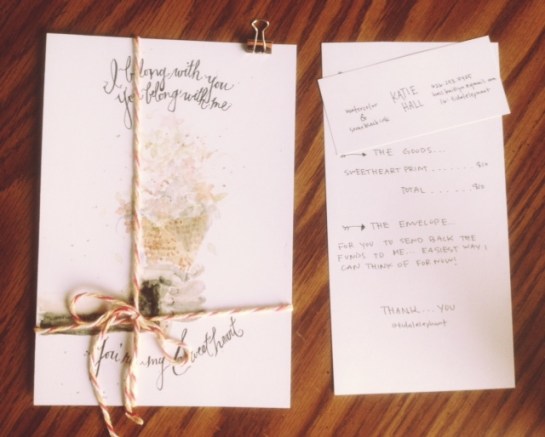 I belong with you
you belong with me
You're my Sweetheart
watercolor
&
KATIE
HALL
THE GOODS...
SWEETHEART PRINT ....... $10
TOTAL ....... $10
THE ENVELOPE...
FOR YOU TO SEND BACK THE
FUNDS TO ME... EASIEST WAY I
CAN THINK OF FOR NOW!
THANK...YOU